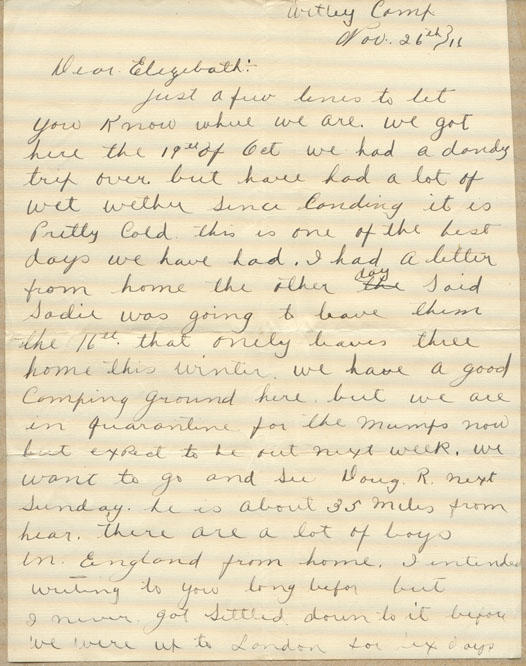 Witley Camp
Nov. 26th/16
Dear Elezebath:-
Just a few lines to let
you know where we are. we got
here the 19th of Oct we had a dandy
trip over. but have had a lot of
wet wether since Landing it is
Pretty Cold. this is one of the best
days we have had. I had a letter
from home the other day the Said
Sadie was going to leave them
the 16th. that onely leaves three
home this winter. we have a good
Camping Ground here. but we are
in quarantine for the mumps now
but expect to be out next week. we
want to go and see Doug. R. next
Sunday. he is about 35 miles from
hear. there are a lot of boys
in England from home. I intended
writing to you long befor but
I never got Settled down to it befor
we were up to London for six days